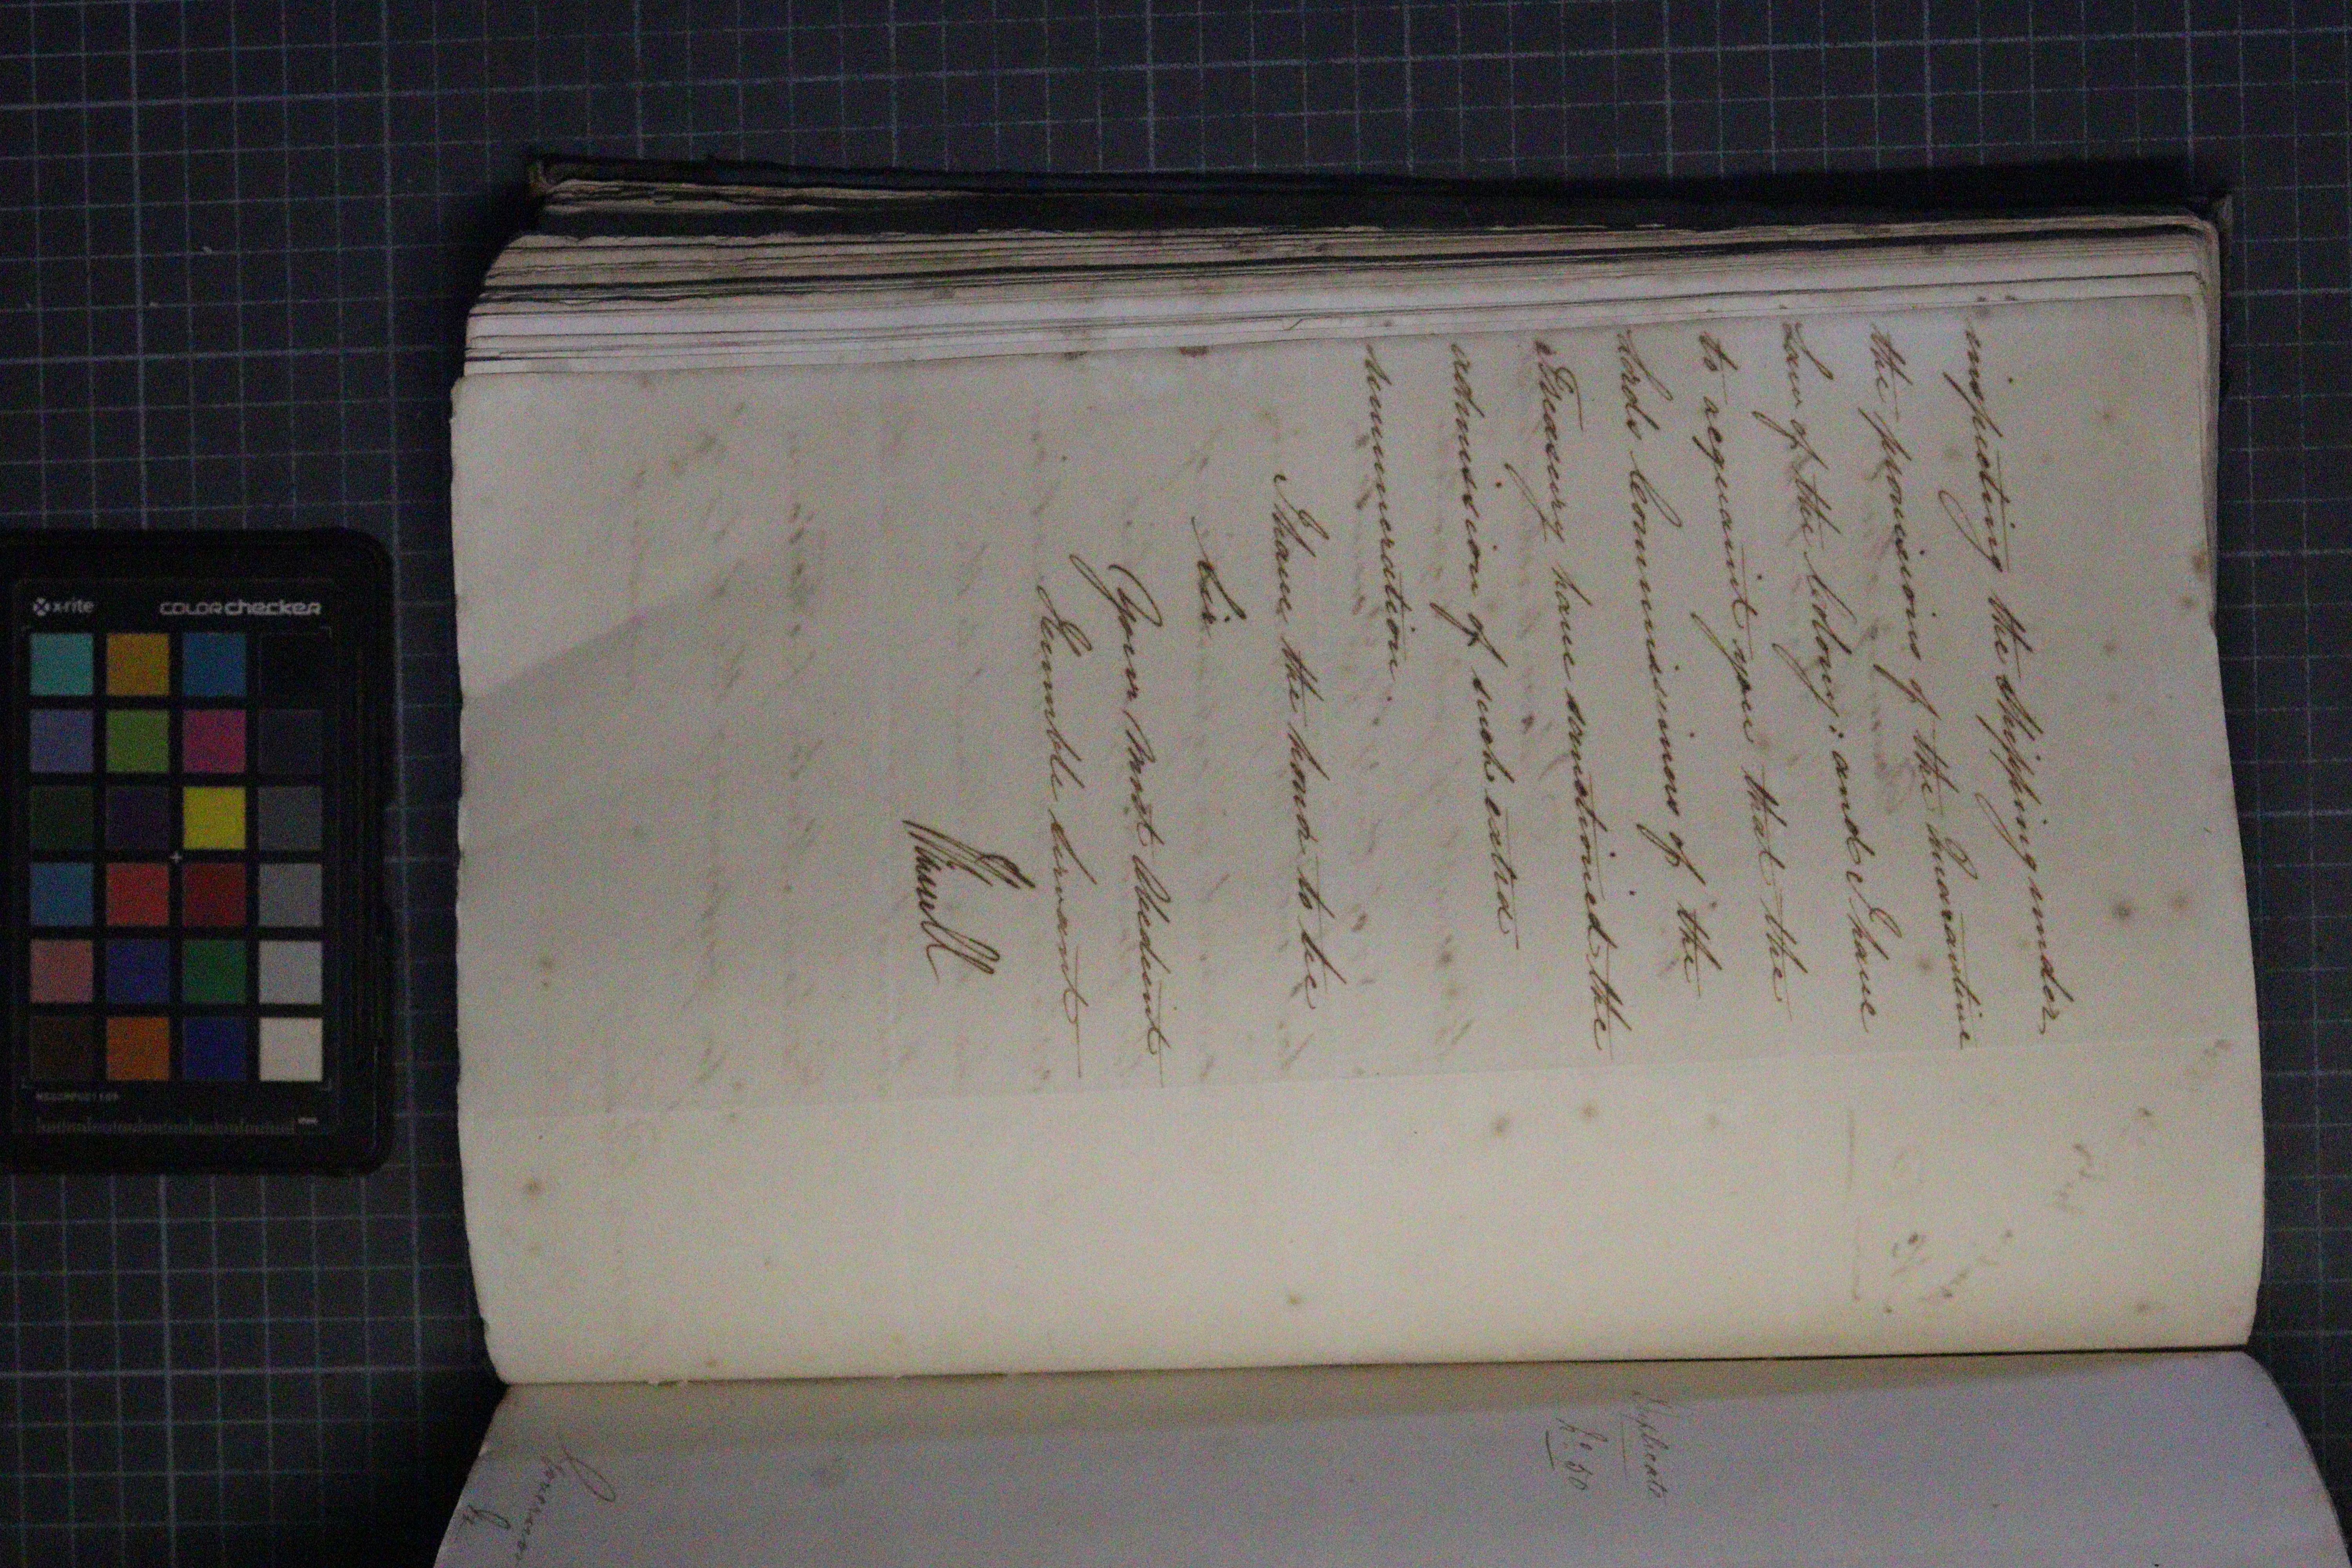 inspecting the shipping under
the provisions of the Quarantine
Law of the Colony; and I have
to acquaint you that the
Lords Commissioners of the
Treasury have sanctioned the
admission of such extra
remuneration.
I have the honor to be
Sir
Your most obedient
Humble servant
Duplicate
No. 50
Governor
x-rite
colorchecker